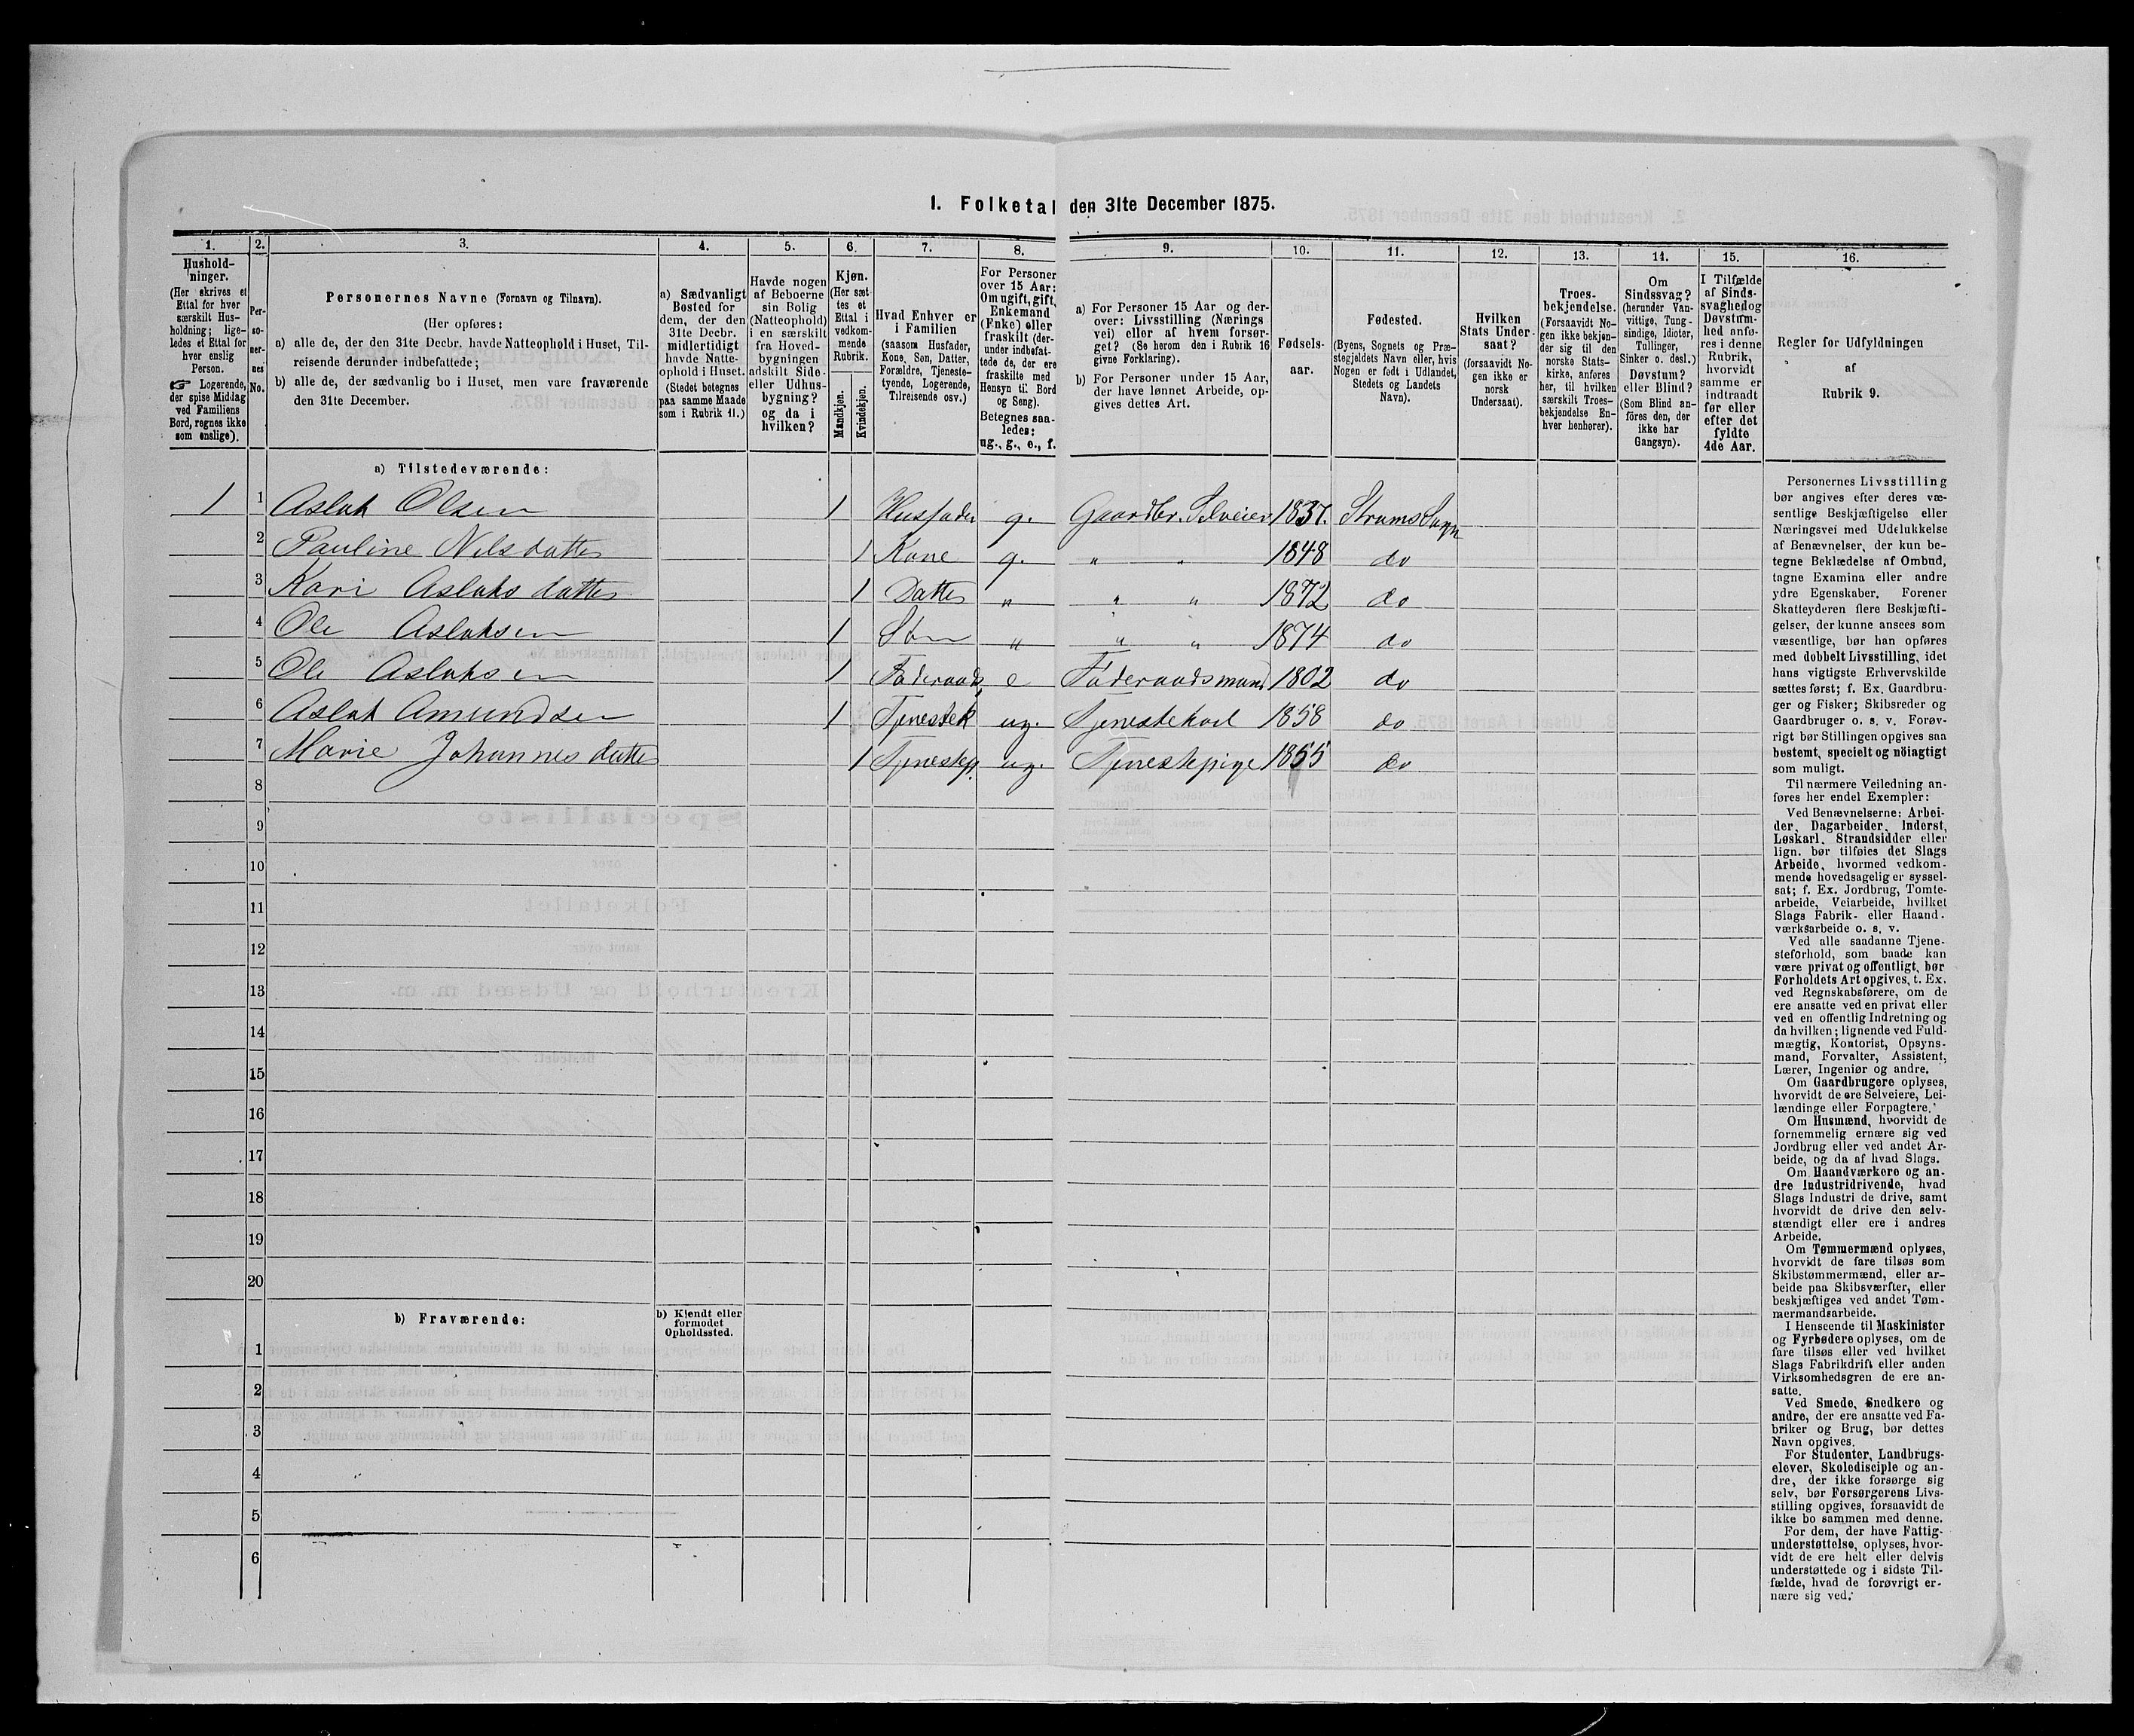 1. Folketal den 31te December 1875.
1. 2. 3. 4. 5. 6. 7. 8. 9. 10. 11. 12. 13. 14. 15. 16.
Hushold-
ninger.
(Her skrives et
Ettal for hver
særskilt Hus-
holdning; lige-
ledes et Ettal for
hver enslig
Person.
☞ Logerende,
der spise Middag
ved Familiens
Bord, regnes ikke
som enslige).
Per-
so-
ner-
nes
No.
Personernes Navne (Fornavn og Tilnavn).
(Her opføres:
a) alle de, der den 31te Decbr. havde Natteophold i Huset, Til-
reisende derunder indbefattede;
b) alle de, der sædvanlig bo i Huset, men vare fraværende
den 31te December.
a) Sædvanligt
Bosted for
dem, der den
31te Decbr.
midlertidigt
havde Natte-
ophold i Huset.
(Stedet betegnes
paa samme Maade
som i Rubrik 11.)
Havde nogen
af Beboerne
sin Bolig
(Natteophold)
i en særskilt
fra Hoved-
bygningen
adskilt Side-
eller Udhus-
bygning?
og da i
hvilken?
Kjøn.
(Her sæt-
tes et
Ettal i
vedkom-
mende
Rubrik.
Mandkjøn.
Kvindekjøn.
Hvad Enhver er
i Familien
(saasom Husfader,
Kone, Søn, Datter,
Forældre, Tjeneste-
tyende, Logerende,
Tilreisende osv.)
For Personer
over 15 Aar:
Om ugift, gift,
Enkemand
(Enke) eller
fraskilt (der-
under indbefat-
tede de, der ere
fraskilte med
Hensyn til Bord
og Seng).
Betegnes saa-
ledes:
ug., g., e., f.
a) For Personer 15 Aar og der-
over: Livsstilling (Nærings
vei) eller af hvem forsør-
get? (Se herom den i Rubrik 16
givne Forklaring).
b) For Personer under 15 Aar,
der have lønnet Arbeide, op-
gives dettes Art.
Fødsels-
aar.
Fødested.
(Byens, Sognets og Præ-
stegjeldets Navn eller, hvis
Nogen er født i Udlandet,
Stedets og Landets
Navn).
Hvilken
Stats Under-
saat?
(forsaavidt No-
gen ikke er
norsk
Undersaat).
Troes-
bekjendelse.
(Forsaavidt No-
gen ikke bekjen-
der sig til den
norske Stats-
kirke, anføres
her, til hvilken
særskilt Troes-
bekjendelse En-
hver henhører).
Om
Sindssvag?
(herunder Van-
vittige, Tung-
sindige, Idioter,
Tullinger,
Sinker o. desl.)
Døvstum?
eller Blind?
(Som Blind an-
føres den, der
ikke har
Gangsyn).
I Tilfælde
af Sinds-
svaghed og
Døvstum-
hed anfø-
res i denne
Rubrik,
hvorvidt
samme er
indtraadt
før eller
efter det
fyldte
4de Aar.
Regler for Udfyldningen
af
Rubrik 9.
a) Tilstedeværende:
1 1 Aslak Olsen 1 Husfader g. Gaardbr. Selveier 1837. Strøms Sogn
2 Pauline Nilsdatter 1 Kone g. " " 1848 do
3 Kari Aslaksdatter 1 Datter " " " 1872 do
4 Ole Aslaksen 1 Søn " " " 1874 do
5 Ole Aslaksen 1 Føderaads e Føderaadsmand 1802 do
6 Aslak Amundsen 1 Tjenestek ug. Tjenestekarl 1858 do
7 Marie Johannesdatter 1 Tjenestep. ug. Tjenestepige 1855 do
8
9
10
11
12
13
14
15
16
17
18
19
20
b) Fraværende:
b) Kjendt eller
formodet
Opholdssted.
1
2
3
4
5
6
Personernes Livsstilling
bør angives efter deres væ-
sentlige Beskjæftigelse eller
Næringsvei med Udelukkelse
af Benævnelser, der kun be-
tegne Beklædelse af Ombud,
tagne Examina eller andre
ydre Egenskaber. Forener
Skatteyderen flere Beskjæfti-
gelser, der kunne ansees som
væsentlige, bør han opføres
med dobbelt Livsstilling, idet
hans vigtigste Erhvervskilde
sættes først; f. Ex. Gaardbru-
ger og Fisker; Skibsreder og
Gaardbruger o. s. v. Forøv-
rigt bør Stillingen opgives saa
bestemt, specielt og nöiagtigt
som muligt.
Til nærmere Veiledning an-
føres her endel Exempler:
Ved Benævnelserne: Arbei-
der, Dagarbeider, Inderst,
Løskarl, Strandsidder eller
lign. bør tilføies det Slags
Arbeide, hvormed vedkom-
mende hovedsagelig er syssel-
sat; f. Ex. Jordbrug, Tomte-
arbeide, Veiarbeide, hvilket
Slags Fabrik- eller Haand-
værksarbeide o. s. v.
Ved alle saadanne Tjene-
steforhold, som baade kan
være privat og offentligt, bør
Forholdets Art opgives, t. Ex.
ved Regnskabsførere, om de
ere ansatte ved en privat eller
ved en offentlig Indretning og
da hvilken; lignende ved Fuld-
mægtig, Kontorist, Opsyns-
mand, Forvalter, Assistent,
Lærer, Ingeniør og andre.
Om Gaardbrugere oplyses,
hvorvidt de ere Selveiere, Lei-
lændinge eller Forpagtere.
Om Husmænd, hvorvidt de
fornemmelig ernære sig ved
Jordbrug eller ved andet Ar-
beide, og da af hvad Slags.
Om Haandværkere og an-
dre Industridrivende, hvad
Slags Industri de drive, samt
hvorvidt de drive den selv-
stændigt eller ere i andres
Arbeide.
Om Tømmermænd oplyses,
hvorvidt de fare tilsøs som
Skibstømmermænd, eller ar-
beide paa Skibsværfter, eller
beskjæftiges ved andet Tøm-
mermandsarbeide.
I Henseende til Maskinister
og Fyrbødere oplyses, om de
fare tilsøs eller ved hvilket
Slags Fabrikdrift eller anden
Virksomhedsgren de ere an-
satte.
Ved Smede, Snedkere og
andre, der ere ansatte ved Fa-
briker og Brug, bør dettes
Navn opgives.
For Studenter, Landbrugs-
elever, Skoledisciple og an-
dre, der ikke forsørge sig
selv, bør Forsørgerens Livs-
stilling opgives, forsaavidt de
ikke bo sammen med denne.
For dem, der have Fattig-
understøttelse, oplyses, hvor-
vidt de ere helt eller delvis
understøttede og i sidste Til-
fælde, hvad de forøvrigt er-
nære sig ved.